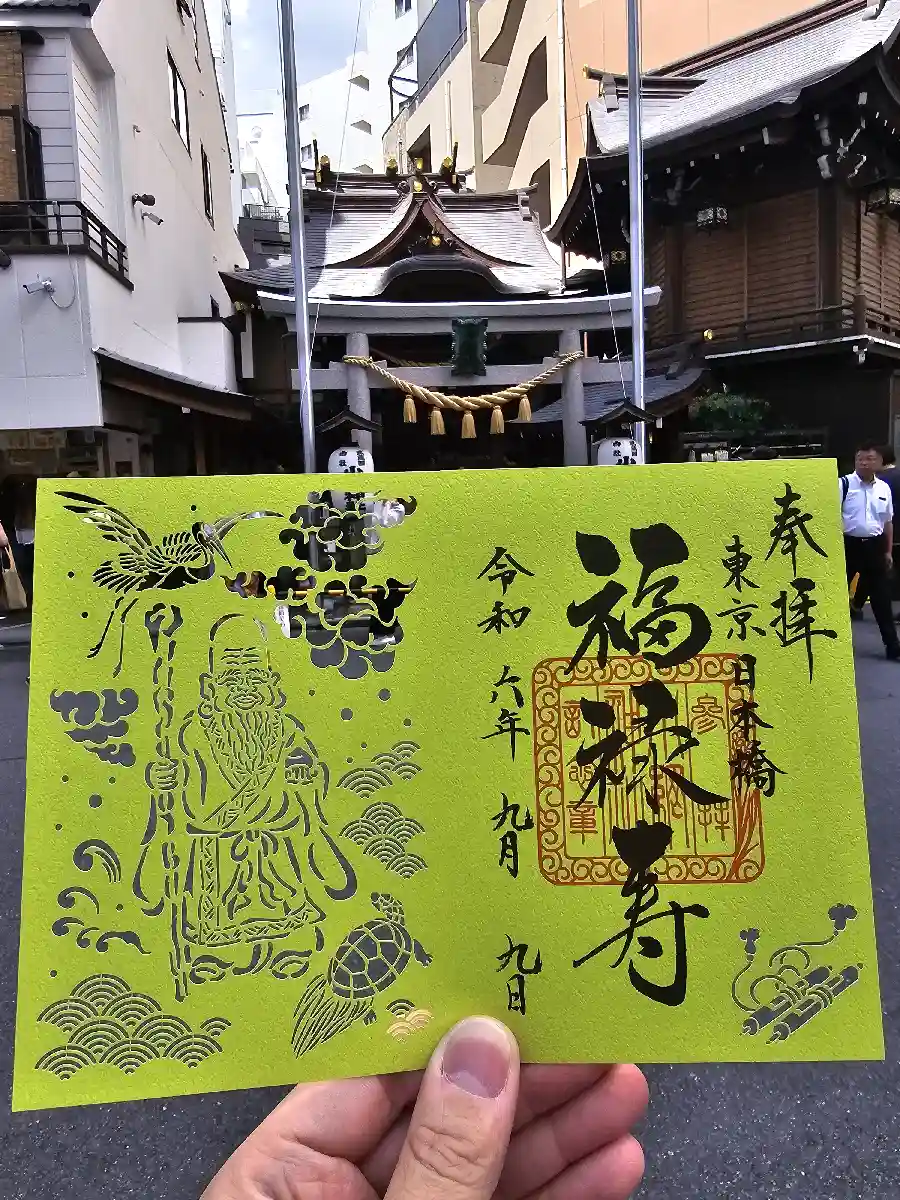 奉拝
東京
日本橋
福禄寿
令和六年九月九日